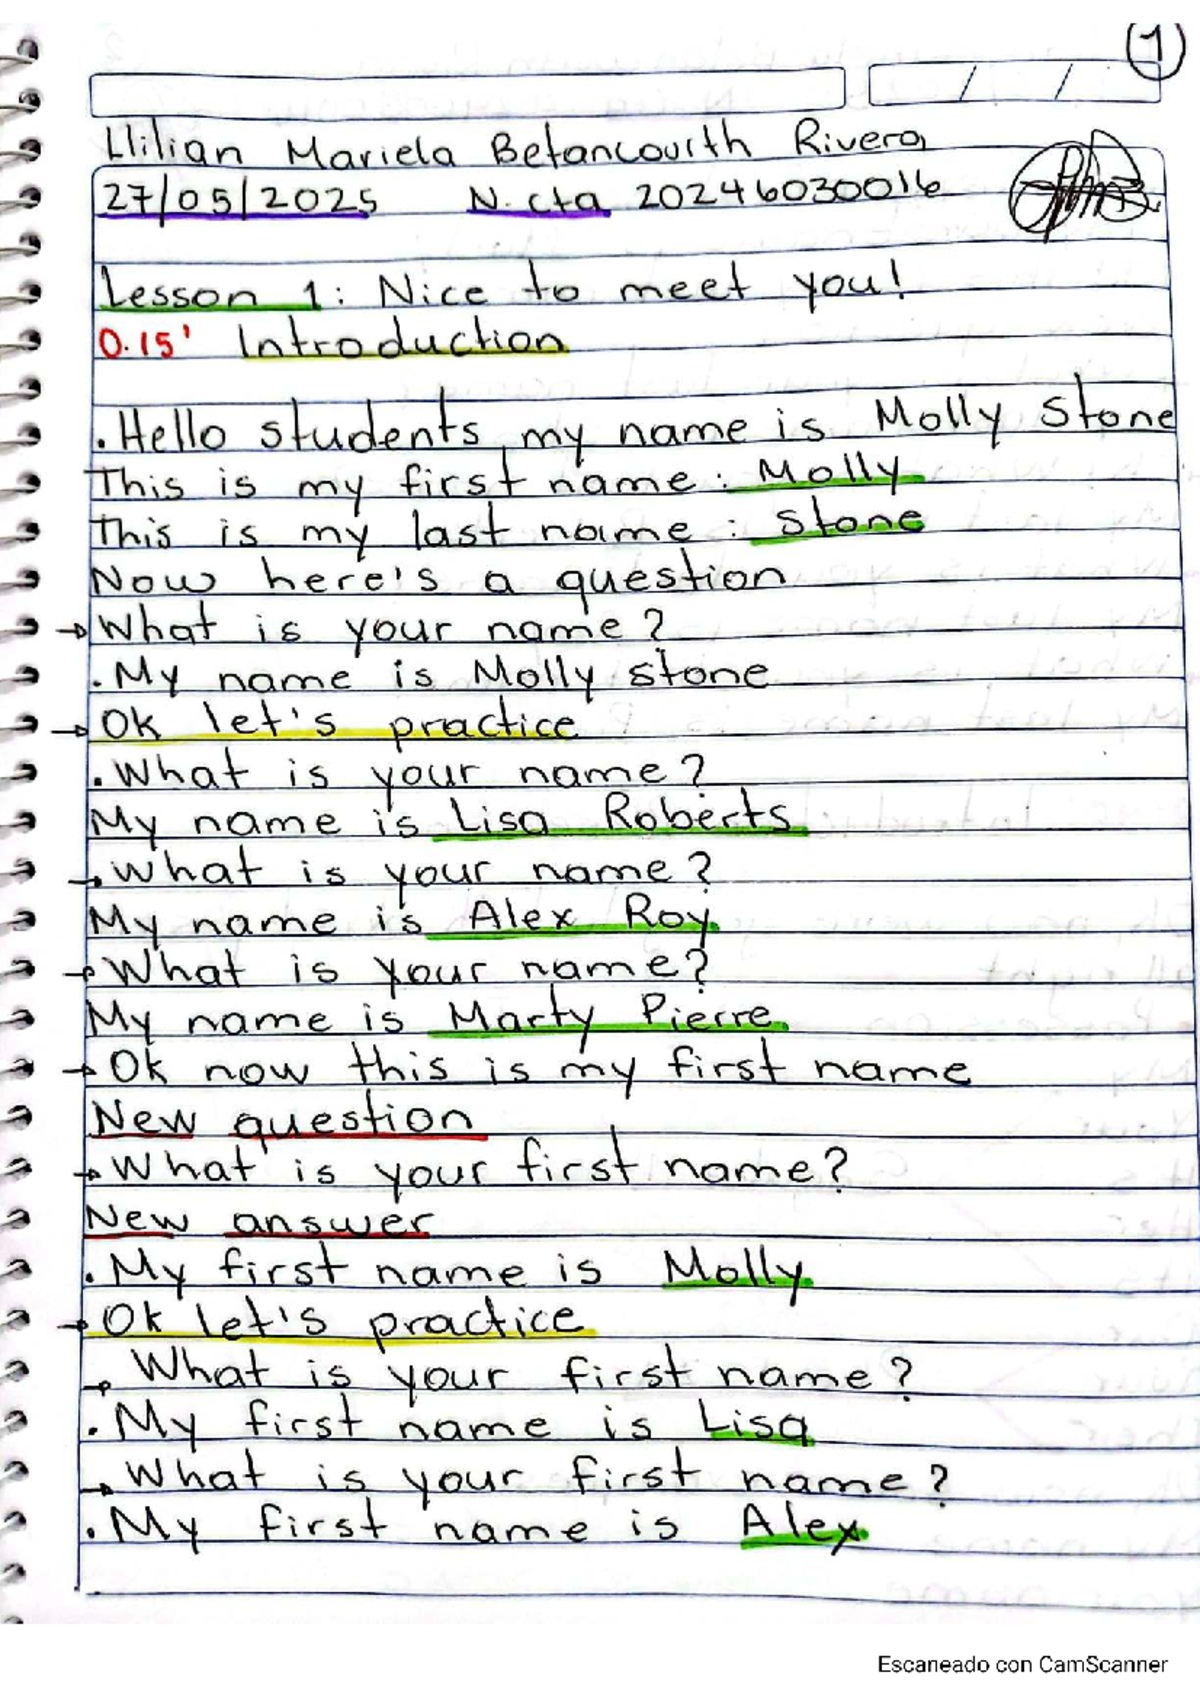 1
/ /
Llilian Mariela Betancourth Rivera
27/05/2025 N. cta 20246030016
Lesson 1: Nice to meet you!
0.15' Introduction
.Hello students, my name is Molly Stone
This is my first name: Molly
This is my last name: Stone
Now here's a question
→What is your name?
.My name is Molly stone
→Ok let's practice
.What is your name?
My name is Lisa Roberts
→.What is your name?
My name is Alex Roy.
→What is your name?
My name is Marty Pierre.
→Ok now this is my first name
New question
→What is your first name?
New answer
.My first name is Molly
→Ok let's practice
→What is your first name?
.My first name is Lisa
→What is your first name?
.My first name is Alex
Escaneado con CamScanner